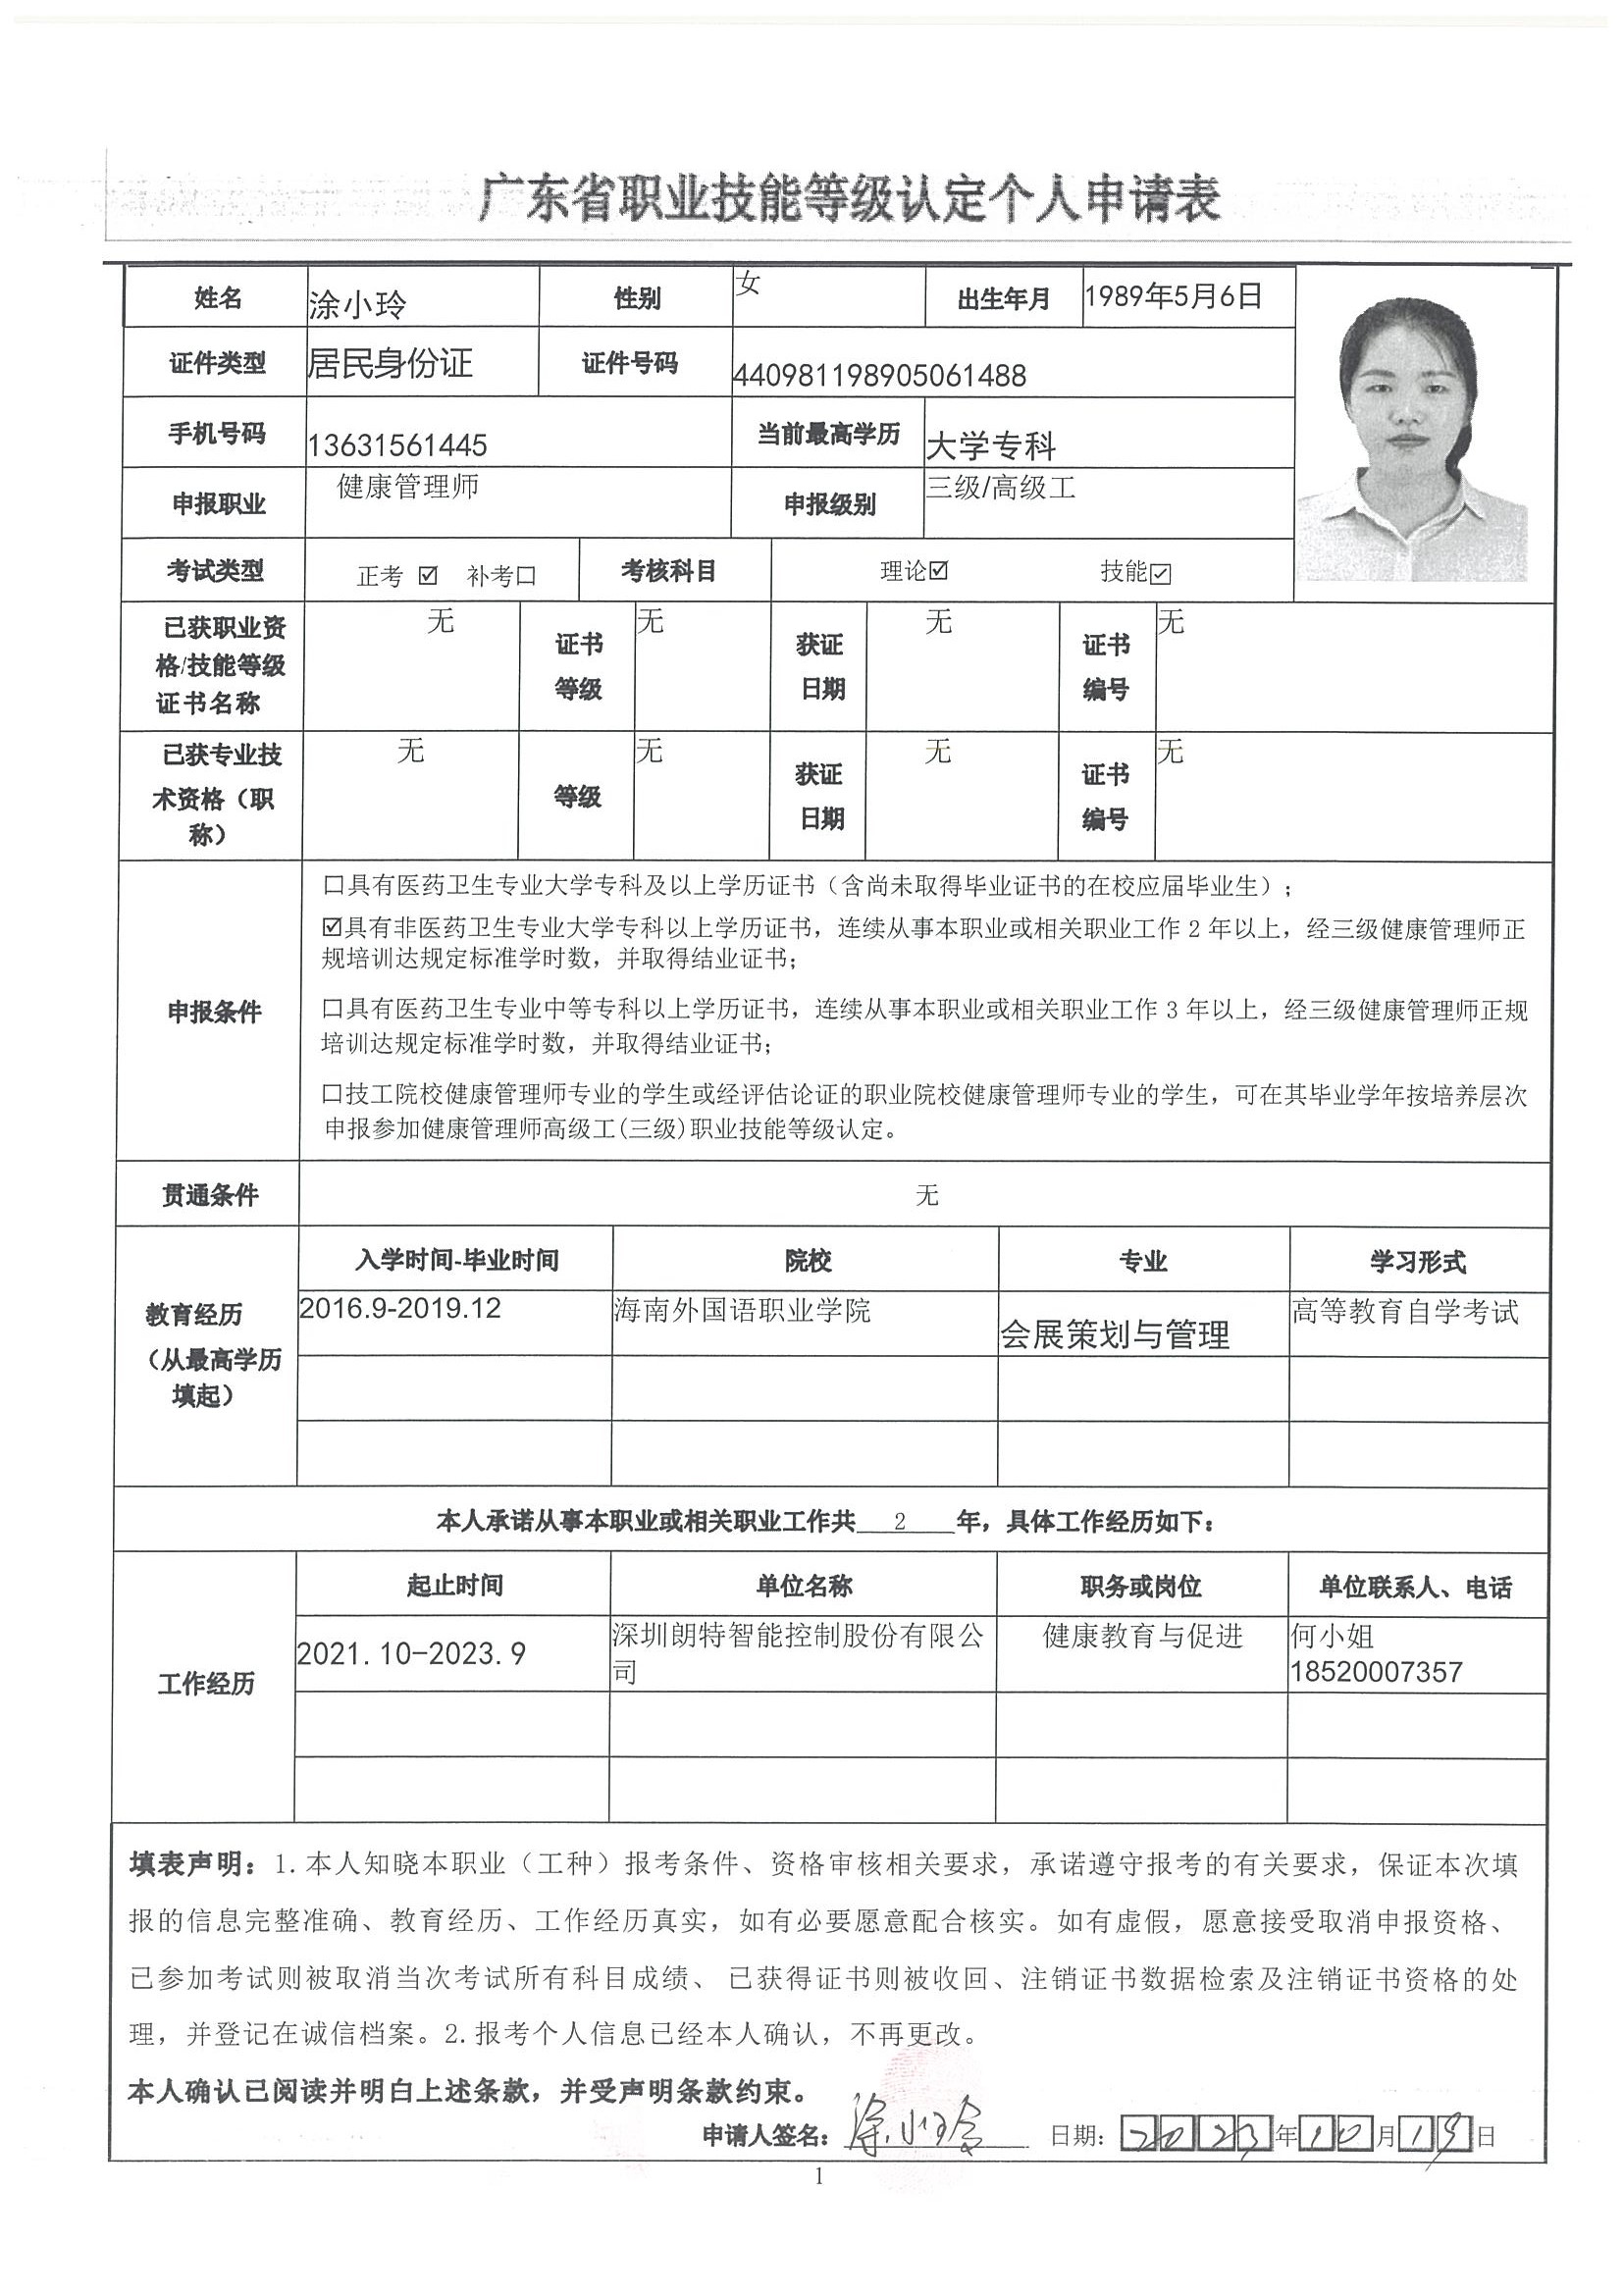 广东省职业技能等级认定个人申请表
姓名 涂小玲 性别 女 出生年月 1989年5月6日
证件类型 居民身份证 证件号码 440981198905061488
手机号码 13631561445 当前最高学历 大学专科
申报职业 健康管理师 申报级别 三级/高级工
考试类型 正考 ☑ 补考☐ 考核科目 理论☑ 技能☑
已获职业资格/技能等级证书名称 无 证书等级 无 获证日期 无 证书编号 无
已获专业技术资格（职称） 无 等级 无 获证日期 无 证书编号 无
申报条件
☐具有医药卫生专业大学专科及以上学历证书（含尚未取得毕业证书的在校应届毕业生）；
☑具有非医药卫生专业大学专科以上学历证书，连续从事本职业或相关职业工作 2 年以上，经三级健康管理师正
规培训达规定标准学时数，并取得结业证书；
☐具有医药卫生专业中等专科以上学历证书，连续从事本职业或相关职业工作 3 年以上，经三级健康管理师正规
培训达规定标准学时数，并取得结业证书；
☐技工院校健康管理师专业的学生或经评估论证的职业院校健康管理师专业的学生，可在其毕业学年按培养层次
申报参加健康管理师高级工(三级)职业技能等级认定。
贯通条件 无
教育经历（从最高学历填起）
入学时间-毕业时间 院校 专业 学习形式
2016.9-2019.12 海南外国语职业学院 会展策划与管理 高等教育自学考试
本人承诺从事本职业或相关职业工作共 2 年，具体工作经历如下：
工作经历
起止时间 单位名称 职务或岗位 单位联系人、电话
2021.10-2023.9 深圳朗特智能控制股份有限公司 健康教育与促进 何小姐 18520007357
填表声明：1.本人知晓本职业（工种）报考条件、资格审核相关要求，承诺遵守报考的有关要求，保证本次填
报的信息完整准确、教育经历、工作经历真实，如有必要愿意配合核实。如有虚假，愿意接受取消申报资格、
已参加考试则被取消当次考试所有科目成绩、 已获得证书则被收回、注销证书数据检索及注销证书资格的处
理，并登记在诚信档案。2.报考个人信息已经本人确认，不再更改。
本人确认已阅读并明白上述条款，并受声明条款约束。
申请人签名：涂小玲 日期：2023年10月19日
1